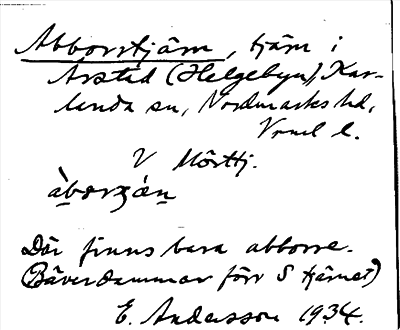 Abborrtjärn, tjärn i
Årstad (Helgebyn), Kar-
landa sn, Nordmarks hd,
Vrml l.
V Mörttj.
Där finns bara abborre.
(Bäverdammar förr S tjärnet)
E. Andersson 1934.